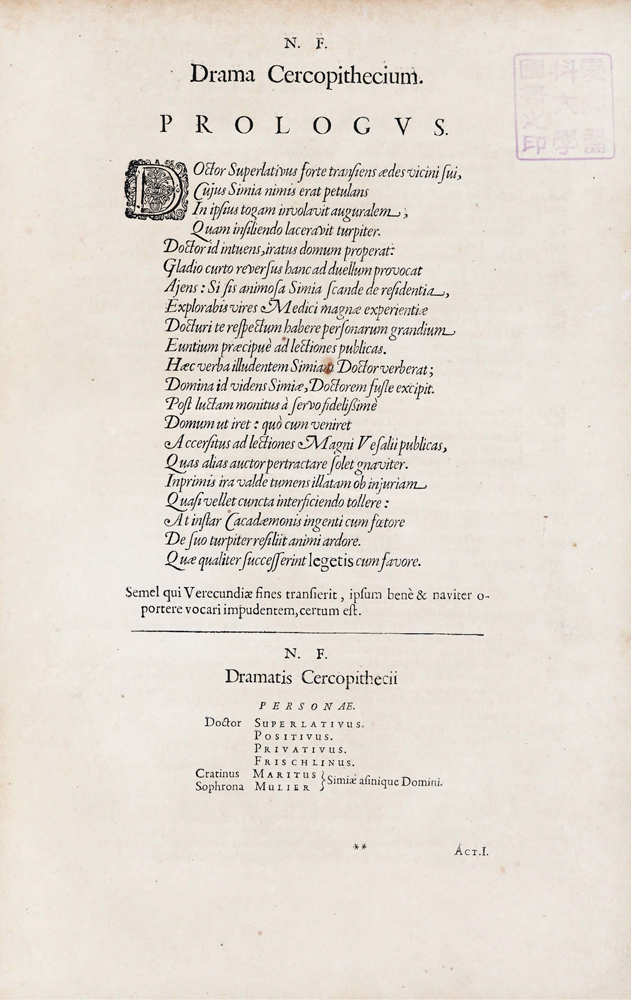 N. F.
Drama Cercopithecium.
PROLOGVS.
DOctor Superlativus forte transiens ædes vicini sui,
Cujus Simia nimis erat petulans
In ipsius togam involavit auguralem,
Quam insiliendo laceravit turpiter.
Doctor id intuens, iratus domum properat:
Gladio curto reversus hanc ad duellum provocat
Ajens: Si sis animosa Simia scande de residentia,
Explorabis vires Medici magnæ experientiæ
Docturi te respectum habere personarum grandium
Euntium præcipuè ad lectiones publicas.
Hæc verba illudentem Simiam Doctor verberat;
Domina id videns Simiæ, Doctorem fuste excipit.
Post luctam monitus à servo fidelissimè
Domum ut iret: quò cum veniret
Accersitus ad lectiones Magni Vesalii publicas,
Quas alias auctor pertractare solet gnaviter.
Inprimis ira valde tumens illatam ob injuriam
Quasi vellet cuncta interficiendo tollere:
At instar Cacadæmonis ingenti cum fœtore
De suo turpiter resiliit animi ardore.
Quæ qualiter successerint legetis cum favore.
Semel qui Verecundiæ fines transierit, ipsum benè & naviter o-
portere vocari impudentem, certum est.
N. F.
Dramatis Cercopithecii
PERSONÆ.
Doctor SUPERLATIVUS.
POSITIVUS.
PRIVATIVUS.
FRISCHLINUS.
Cratinus MARITUS } Simiæ asinique Domini.
Sophrona MULIER
** ACT. I.